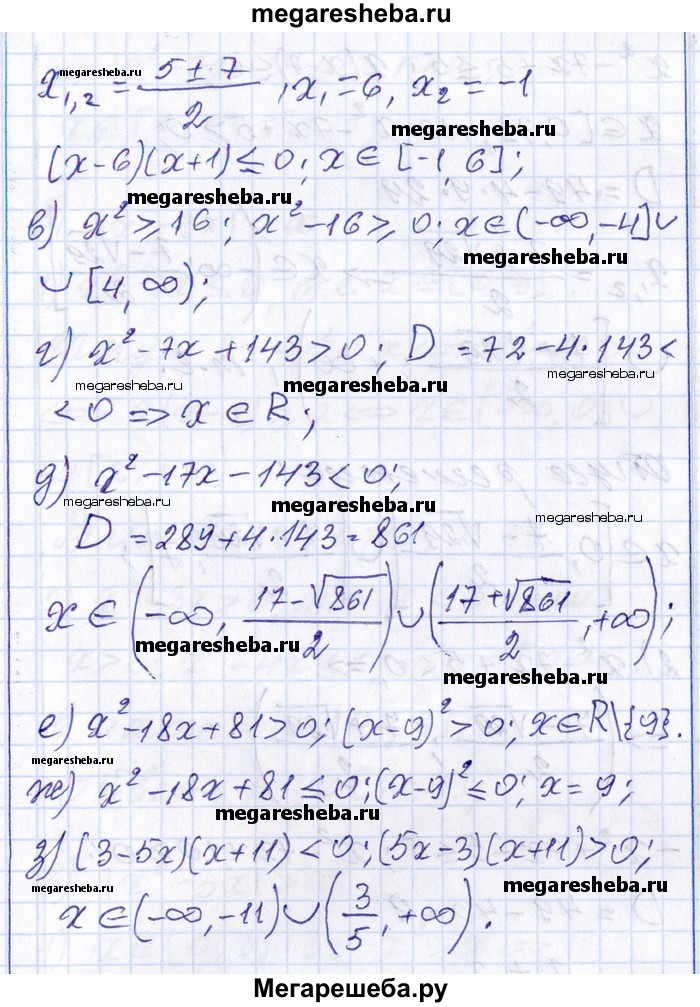 megaresheba.ru
x₁,₂ = (5 ± 7)/2, x₁ = 6, x₂ = -1
megaresheba.ru
megaresheba.ru
(x-6)(x+1) ≤ 0; x ∈ [-1, 6];
megaresheba.ru
в) x² ≥ 16; x² - 16 ≥ 0; x ∈ (-∞, -4] ∪
megaresheba.ru
∪ [4, ∞);
г) x² - 7x + 143 > 0; D = 72 - 4·143 <
megaresheba.ru
megaresheba.ru
megaresheba.ru
< 0 => x ∈ R;
д) x² - 17x - 143 < 0;
megaresheba.ru
megaresheba.ru
megaresheba.ru
D = 289 + 4·143 = 861
x ∈ (-∞, (17 - √861)/2) ∪ ((17 + √861)/2, +∞);
megaresheba.ru
megaresheba.ru
е) x² - 18x + 81 > 0; (x-9)² > 0; x ∈ R\{9}.
megaresheba.ru
ж) x² - 18x + 81 ≤ 0; (x-9)² ≤ 0; x = 9;
megaresheba.ru
з) (3-5x)(x+11) < 0; (5x-3)(x+11) > 0;
megaresheba.ru
megaresheba.ru
x ∈ (-∞, -11) ∪ (3/5, +∞).
Мегарешеба.ру